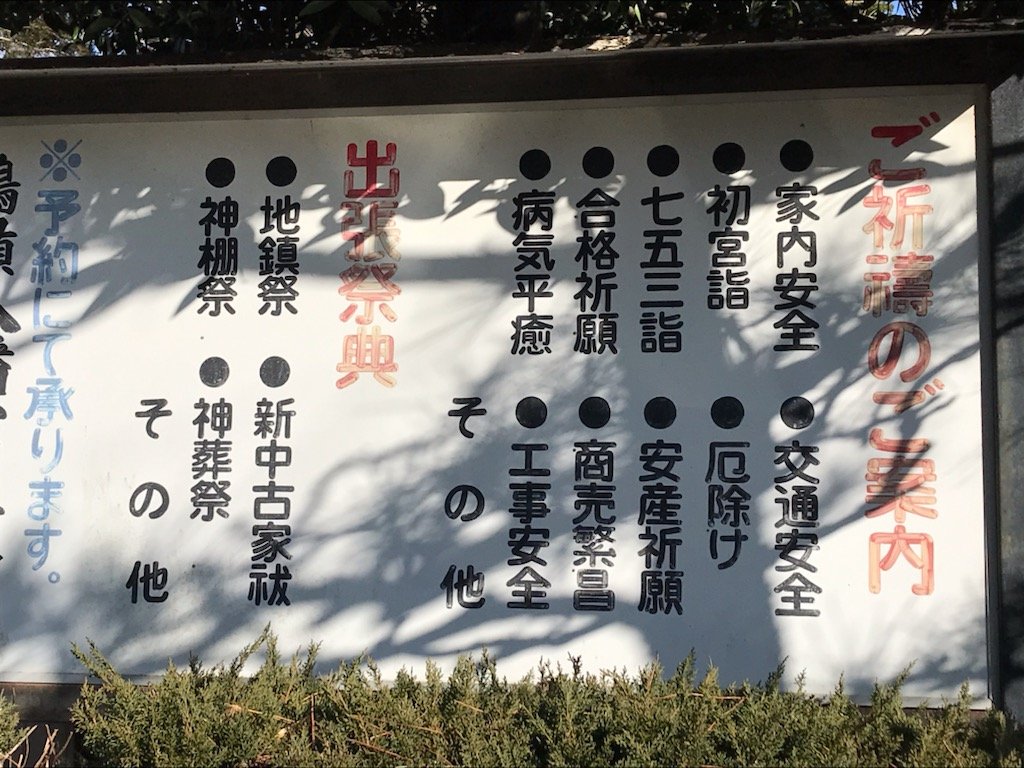 ご祈禱のご案内
●家内安全
●交通安全
●初宮詣
●厄除け
●七五三詣
●安産祈願
●合格祈願
●商売繁昌
●病気平癒
●工事安全
その他
出張祭典
●地鎮祭
●新中古家祓
●神棚祭
●神葬祭
その他
※予約にて承ります。